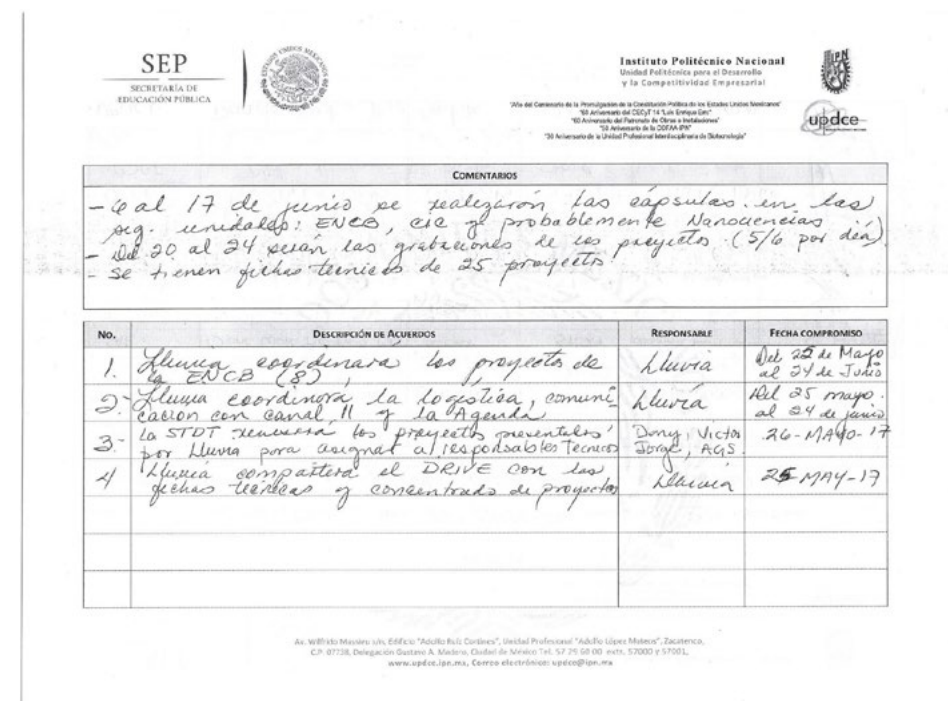 SEP
SECRETARÍA DE
EDUCACIÓN PÚBLICA
ESTADOS UNIDOS MEXICANOS
Instituto Politécnico Nacional
Unidad Politécnica para el Desarrollo
y la Competitividad Empresarial
IPN
updce
"Año del Centenario de la Promulgación de la Constitución Política de los Estados Unidos Mexicanos"
"60 Aniversario del CECyT 14 "Luis Enrique Erro"
"60 Aniversario del Patronato de Obras e Instalaciones"
"50 Aniversario de la COFAA-IPN"
"30 Aniversario de la Unidad Profesional Interdisciplinaria de Biotecnología"
COMENTARIOS
- al 17 de junio se realizaron las cápsulas en las
sig. unidades: ENCB, cic y probablemente Nanociencias
- Del 20 al 24 serán las grabaciones de los proyectos (5/6 por día)
- Se tienen fichas técnicas de 25 proyectos.
No. DESCRIPCIÓN DE ACUERDOS RESPONSABLE FECHA COMPROMISO
1. Lluvia coordinará los proyectos de Lluvia Del 25 de Mayo
la ENCB (8) al 24 de Junio
2- Lluvia coordinará la logística, comuni- Lluvia Del 25 mayo.
cación con canal 11 y la Agenda al 24 de junio
3- La STDT los proyectos presentados Dony, Victor 26-MAYO-17
por Lluvia para asignar a responsables Técnicos Jorge, AGS.
4 Lluvia compartirá el DRIVE con las Lluvia 25-MAY-17
fichas técnicas y concentrado de proyectos
Av. Wilfrido Massieu s/n, Edificio "Adolfo Ruiz Cortines", Unidad Profesional "Adolfo López Mateos", Zacatenco,
C.P. 07738, Delegación Gustavo A. Madero, Ciudad de México Tel. 57 29 60 00 exts. 57000 y 57001,
www.updce.ipn.mx, Correo electrónico: updce@ipn.mx